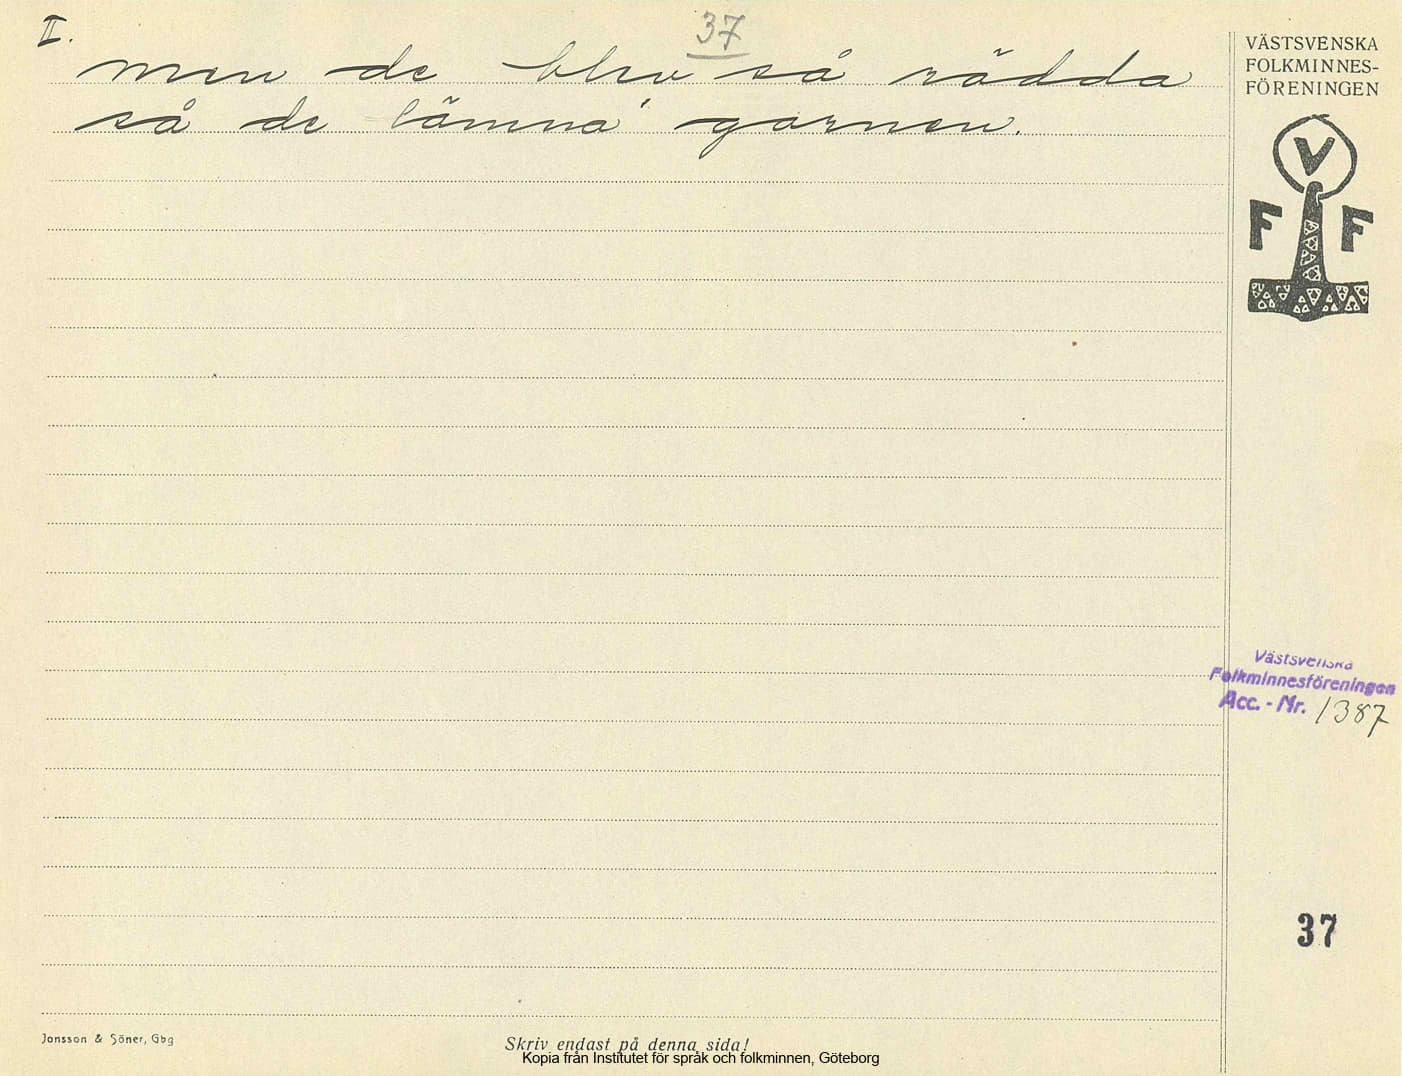 II.
37
men de blev så rädda
så de lämna' garnen.
VÄSTSVENSKA
FOLKMINNES-
FÖRENINGEN
V
F F
Västsvenska
Folkminnesföreningen
Acc. - Nr. 1387
37
Jonsson & Söner, Gbg
Skriv endast på denna sida!
Kopia från Institutet för språk och folkminnen, Göteborg